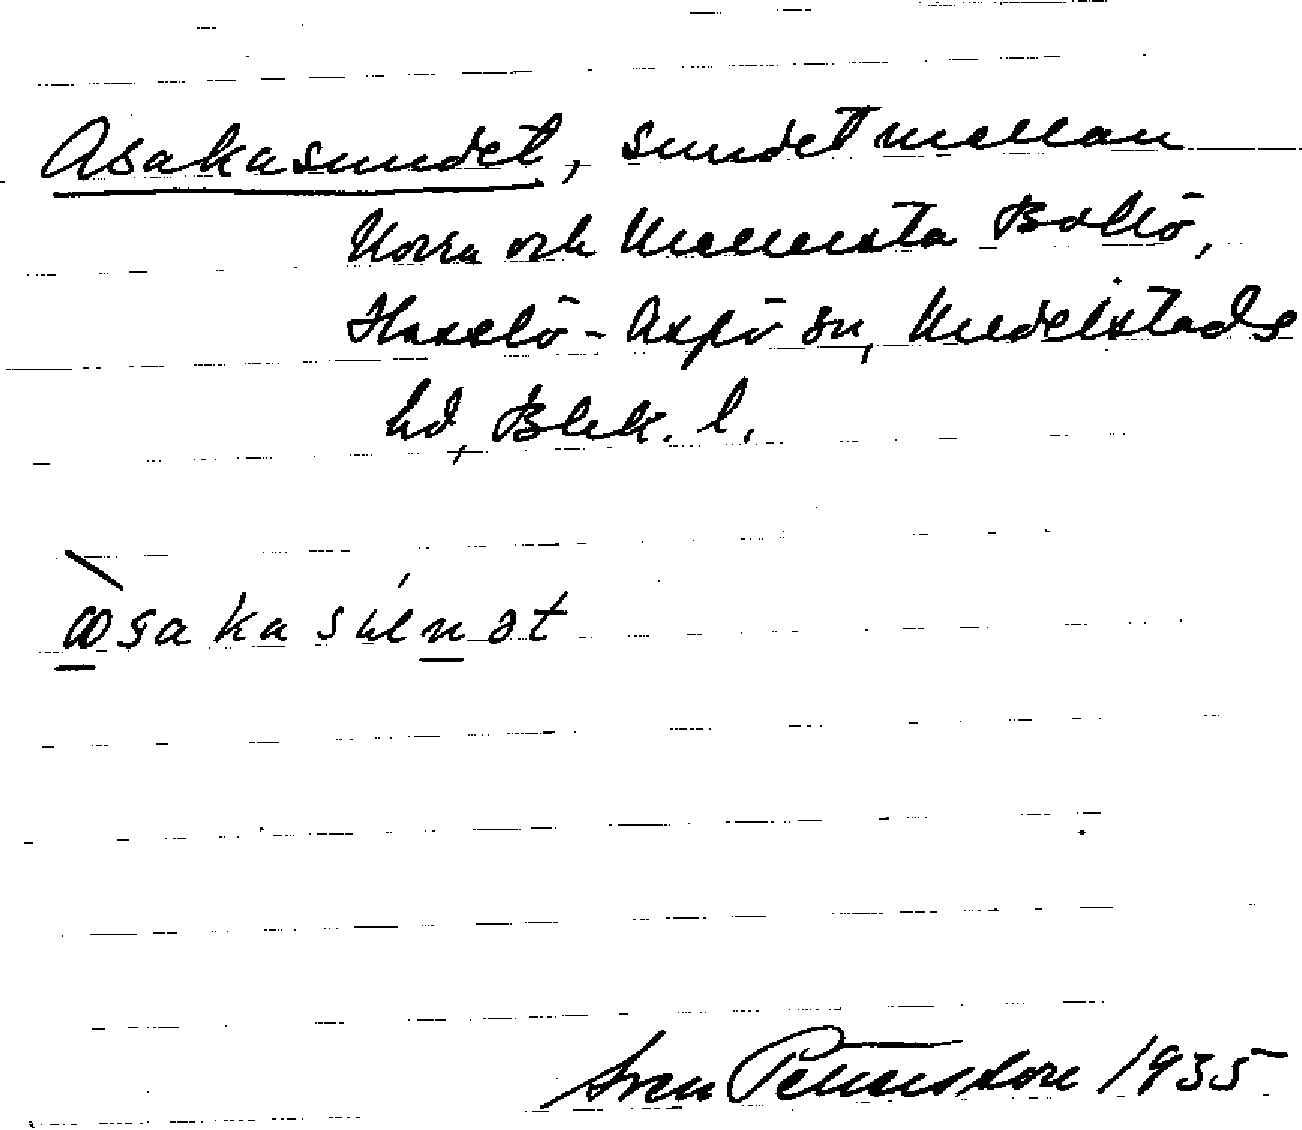 Asakasundet, sundet mellan
Norra och Mellersta Bollö,
Hasslö-Aspö sn, Medelstads
hd, Blek. l.
Sven Pettersson 1935